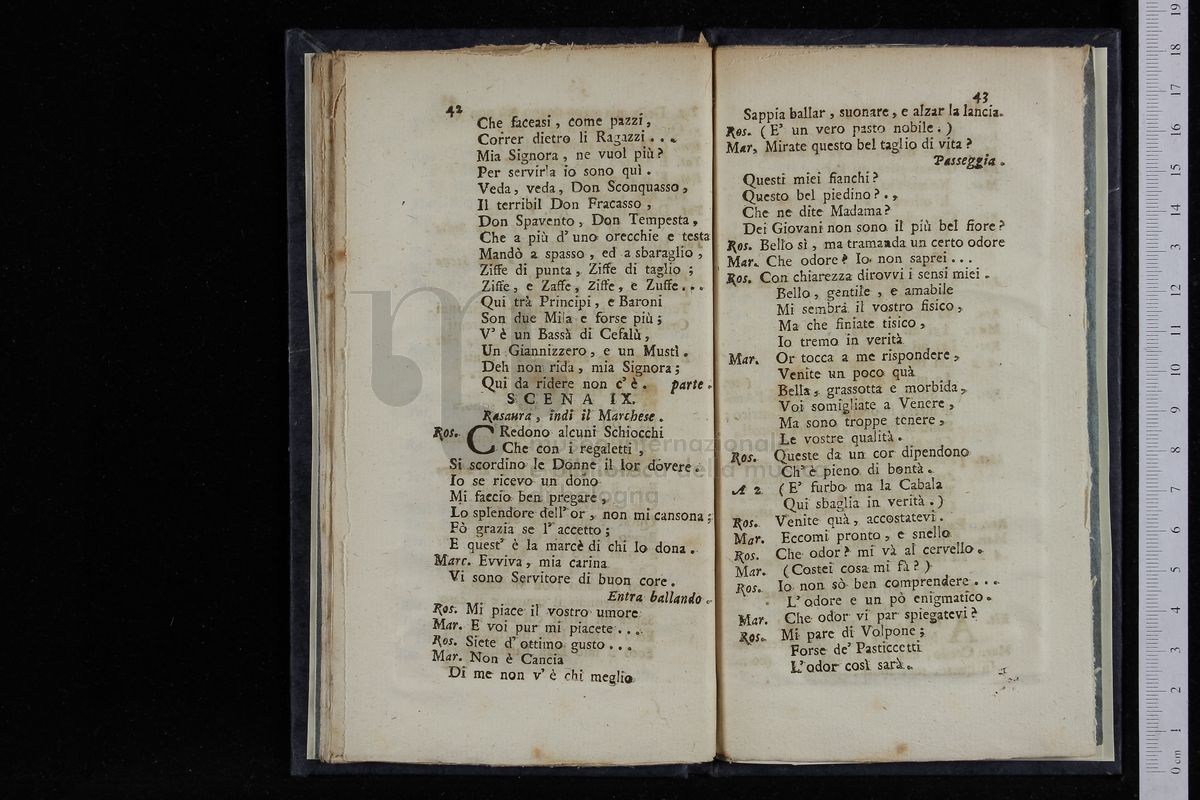 42
Che faceasi, come pazzi,
Correr dietro li Ragazzi...
Mia Signora, ne vuol più?
Per servirla io sono quì.
Veda, veda, Don Sconquasso,
Il terribil Don Fracasso,
Don Spavento, Don Tempesta,
Che a più d'uno orecchie e testa
Mandò a spasso, ed a sbaraglio,
Ziffe di punta, Ziffe di taglio;
Ziffe, e Zaffe, Ziffe, e Zuffe...
Qui trà Principi, e Baroni
Son due Mila e forse più;
V'è un Bassà di Cefalù,
Un Giannizzero, e un Mustì.
Deh non rida, mia Signora;
Qui da ridere non c'è. parte.
SCENA IX.
Rasaura, indi il Marchese.
Ros. CRedono alcuni Schiocchi
Che con i regaletti,
Si scordino le Donne il lor dovere.
Io se ricevo un dono
Mi faccio ben pregare,
Lo splendore dell'or, non mi cansona;
Fò grazia se l'accetto;
E quest' è la marcè di chi lo dona.
Marc. Evviva, mia carina
Vi sono Servitore di buon core.
Entra ballando.
Ros. Mi piace il vostro umore
Mar. E voi pur mi piacete...
Ros. Siete d'ottimo gusto...
Mar. Non è Cancia
Di me non v'è chi meglio
43
Sappia ballar, suonare, e alzar la lancia.
Ros. (E' un vero pasto nobile.)
Mar, Mirate questo bel taglio di vita?
Passeggia.
Questi miei fianchi?
Questo bel piedino?.,
Che ne dite Madama?
Dei Giovani non sono il più bel fiore?
Ros. Bello sì, ma tramanda un certo odore
Mar. Che odore? Io non saprei...
Ros. Con chiarezza dirovvi i sensi miei.
Bello, gentile, e amabile
Mi sembra il vostro fisico,
Ma che finiate tisico,
Io tremo in verità
Mar. Or tocca a me rispondere,
Venite un poco quà
Bella, grassotta e morbida,
Voi somigliate a Venere,
Ma sono troppe tenere,
Le vostre qualità.
Ros. Queste da un cor dipendono
Ch'è pieno di bontà.
A 2 (E' furbo ma la Cabala
Qui sbaglia in verità.)
Ros. Venite quà, accostatevi.
Mar. Eccomi pronto, e snello
Ros. Che odor? mi và al cervello.
Mar. (Costei cosa mi fà?)
Ros. Io non sò ben comprendere...
L'odore e un pò enigmatico.
Mar. Che odor vi par spiegatevi?
Ros. Mi pare di Volpone;
Forse de' Pasticcetti
L'odor così sarà.